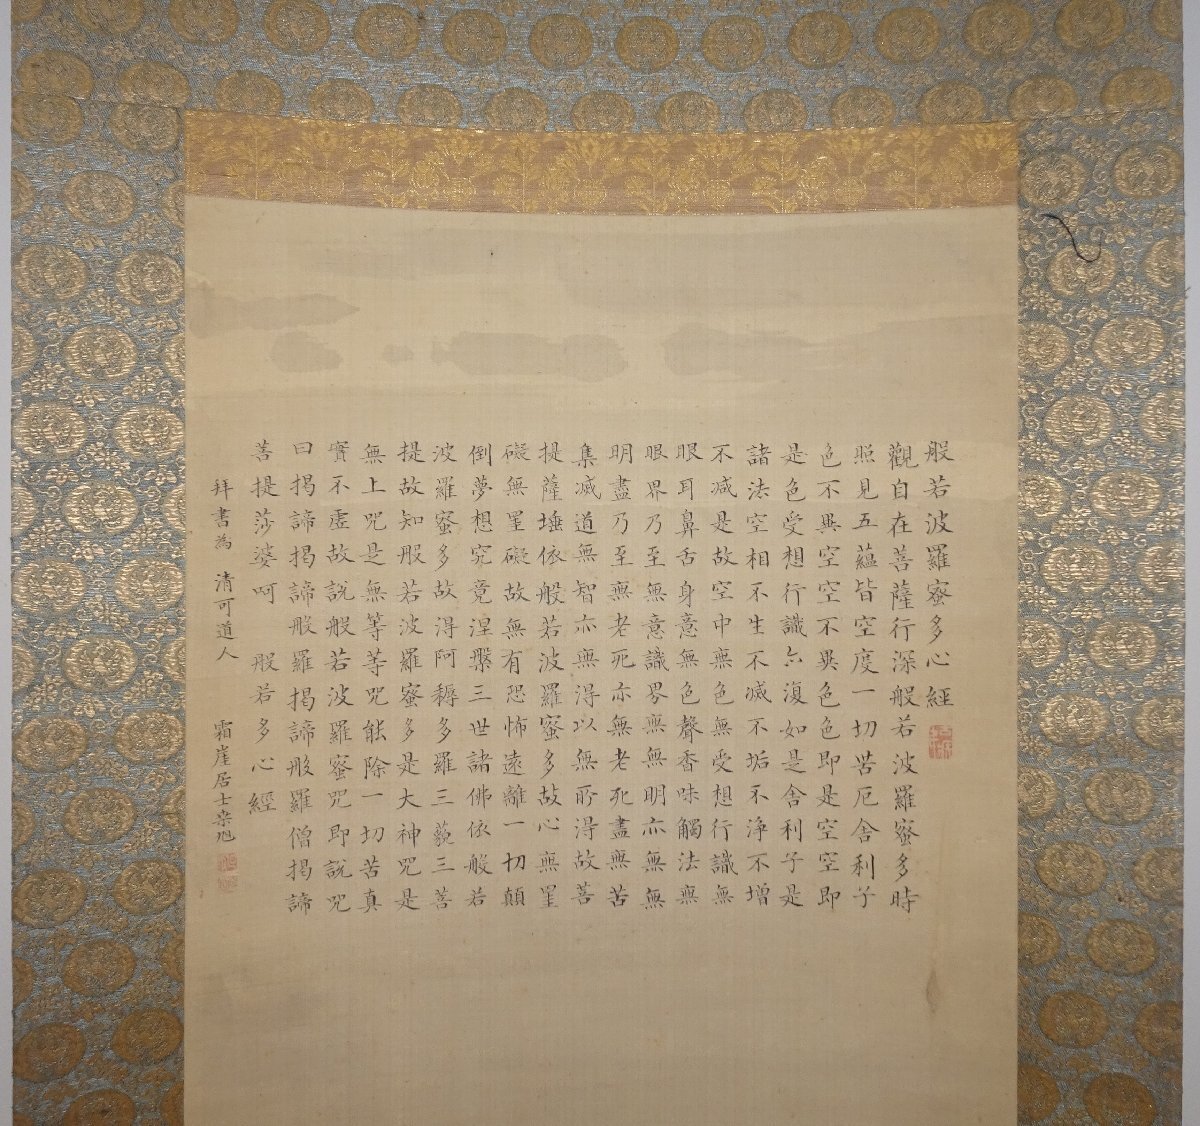 般若波羅蜜多心經
觀自在菩薩行深般若波羅蜜多時
照見五蘊皆空度一切苦厄舍利子
色不異空空不異色色即是空空即
是色受想行識亦復如是舍利子是
諸法空相不生不滅不垢不淨不增
不減是故空中無色無受想行識無
眼耳鼻舌身意無色聲香味觸法無
眼界乃至無意識界無無明亦無無
明盡乃至無老死亦無老死盡無苦
集滅道無智亦無得以無所得故菩
提薩埵依般若波羅蜜多故心無罣
礙無罣礙故無有恐怖遠離一切顛
倒夢想究竟涅槃三世諸佛依般若
波羅蜜多故得阿耨多羅三藐三菩
提故知般若波羅蜜多是大神咒是
無上咒是無等等咒能除一切苦真
實不虛故說般若波羅蜜咒即說咒
曰揭諦揭諦般羅揭諦般羅僧揭諦
菩提莎婆呵 般若多心經
拜書為 清可道人 霜崖居士